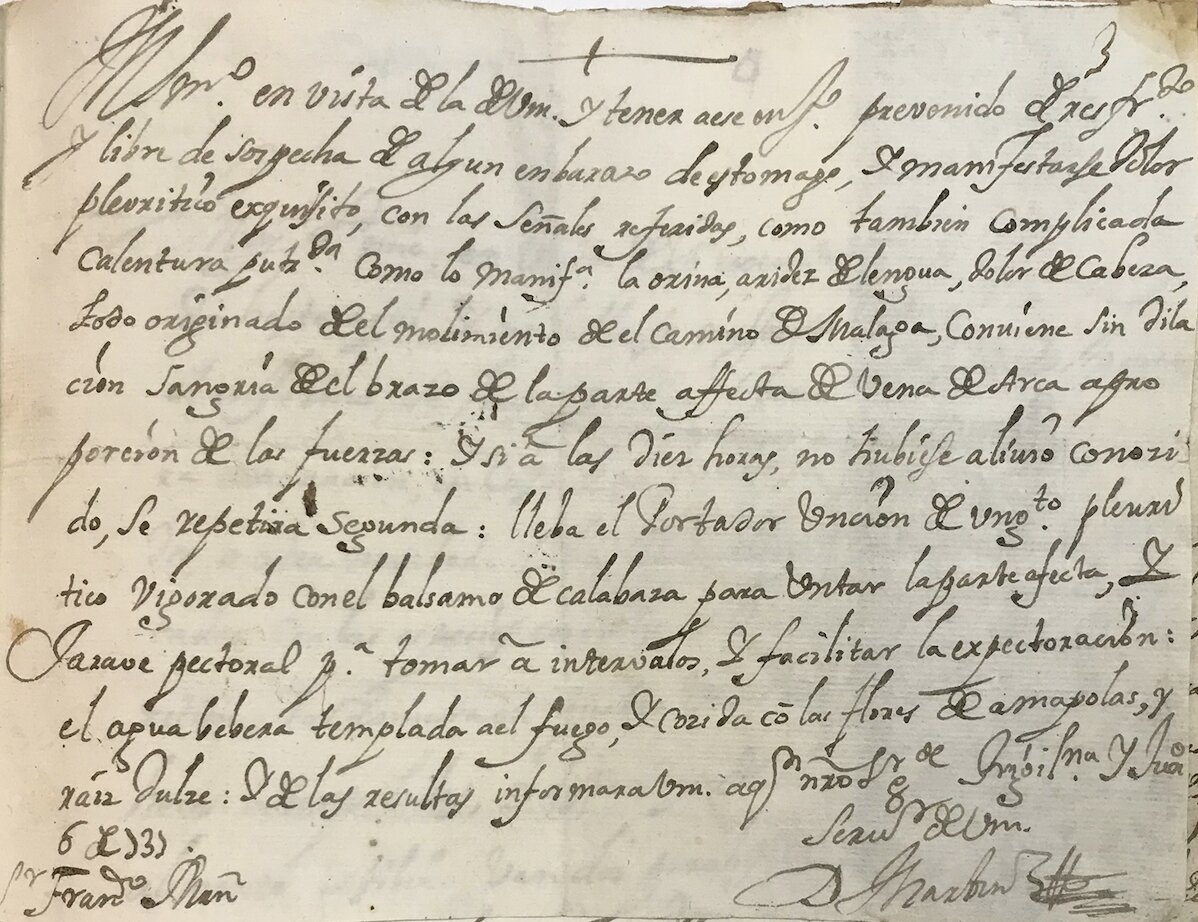 3
mº. en vista de la de Vm. y tener a ese enfº. prevenido de resfrdo.
y libre de sospecha de algun enbarazo de estomago, y manifestarse Dolor
pleuritico exquisito, con las Señales referidas, como tambien complicada
Calentura putrda. como lo manifa. la orina, aridez de lengua, dolor de Cabeza,
todo originado de el molimiento de el camino de Malaga, Conviene sin dila
cion Sangria de el brazo de la parte affecta de Vena de Arca a pro
porcion de las fuerzas: y si à las Diez horas, no hubiese alivio conozi
do, se repetira segunda: lleba el Portador Vncion de Vngto. pleuri
tico vigorado con el balsamo de calabaza para Vntar la parte afecta, y
Jarave pectoral pa. tomar à intervalos, y facilitar la expectoracion:
el agua bebera templada a el fuego, y cozida cõ las flores de amapolas, y
raiz Dulze: y de las resultas informara Vm. a qn nrõ Sr gde y Jun
6 de 1731.
Servor de Vm.
Sr Francdo Mrñ
D Martin